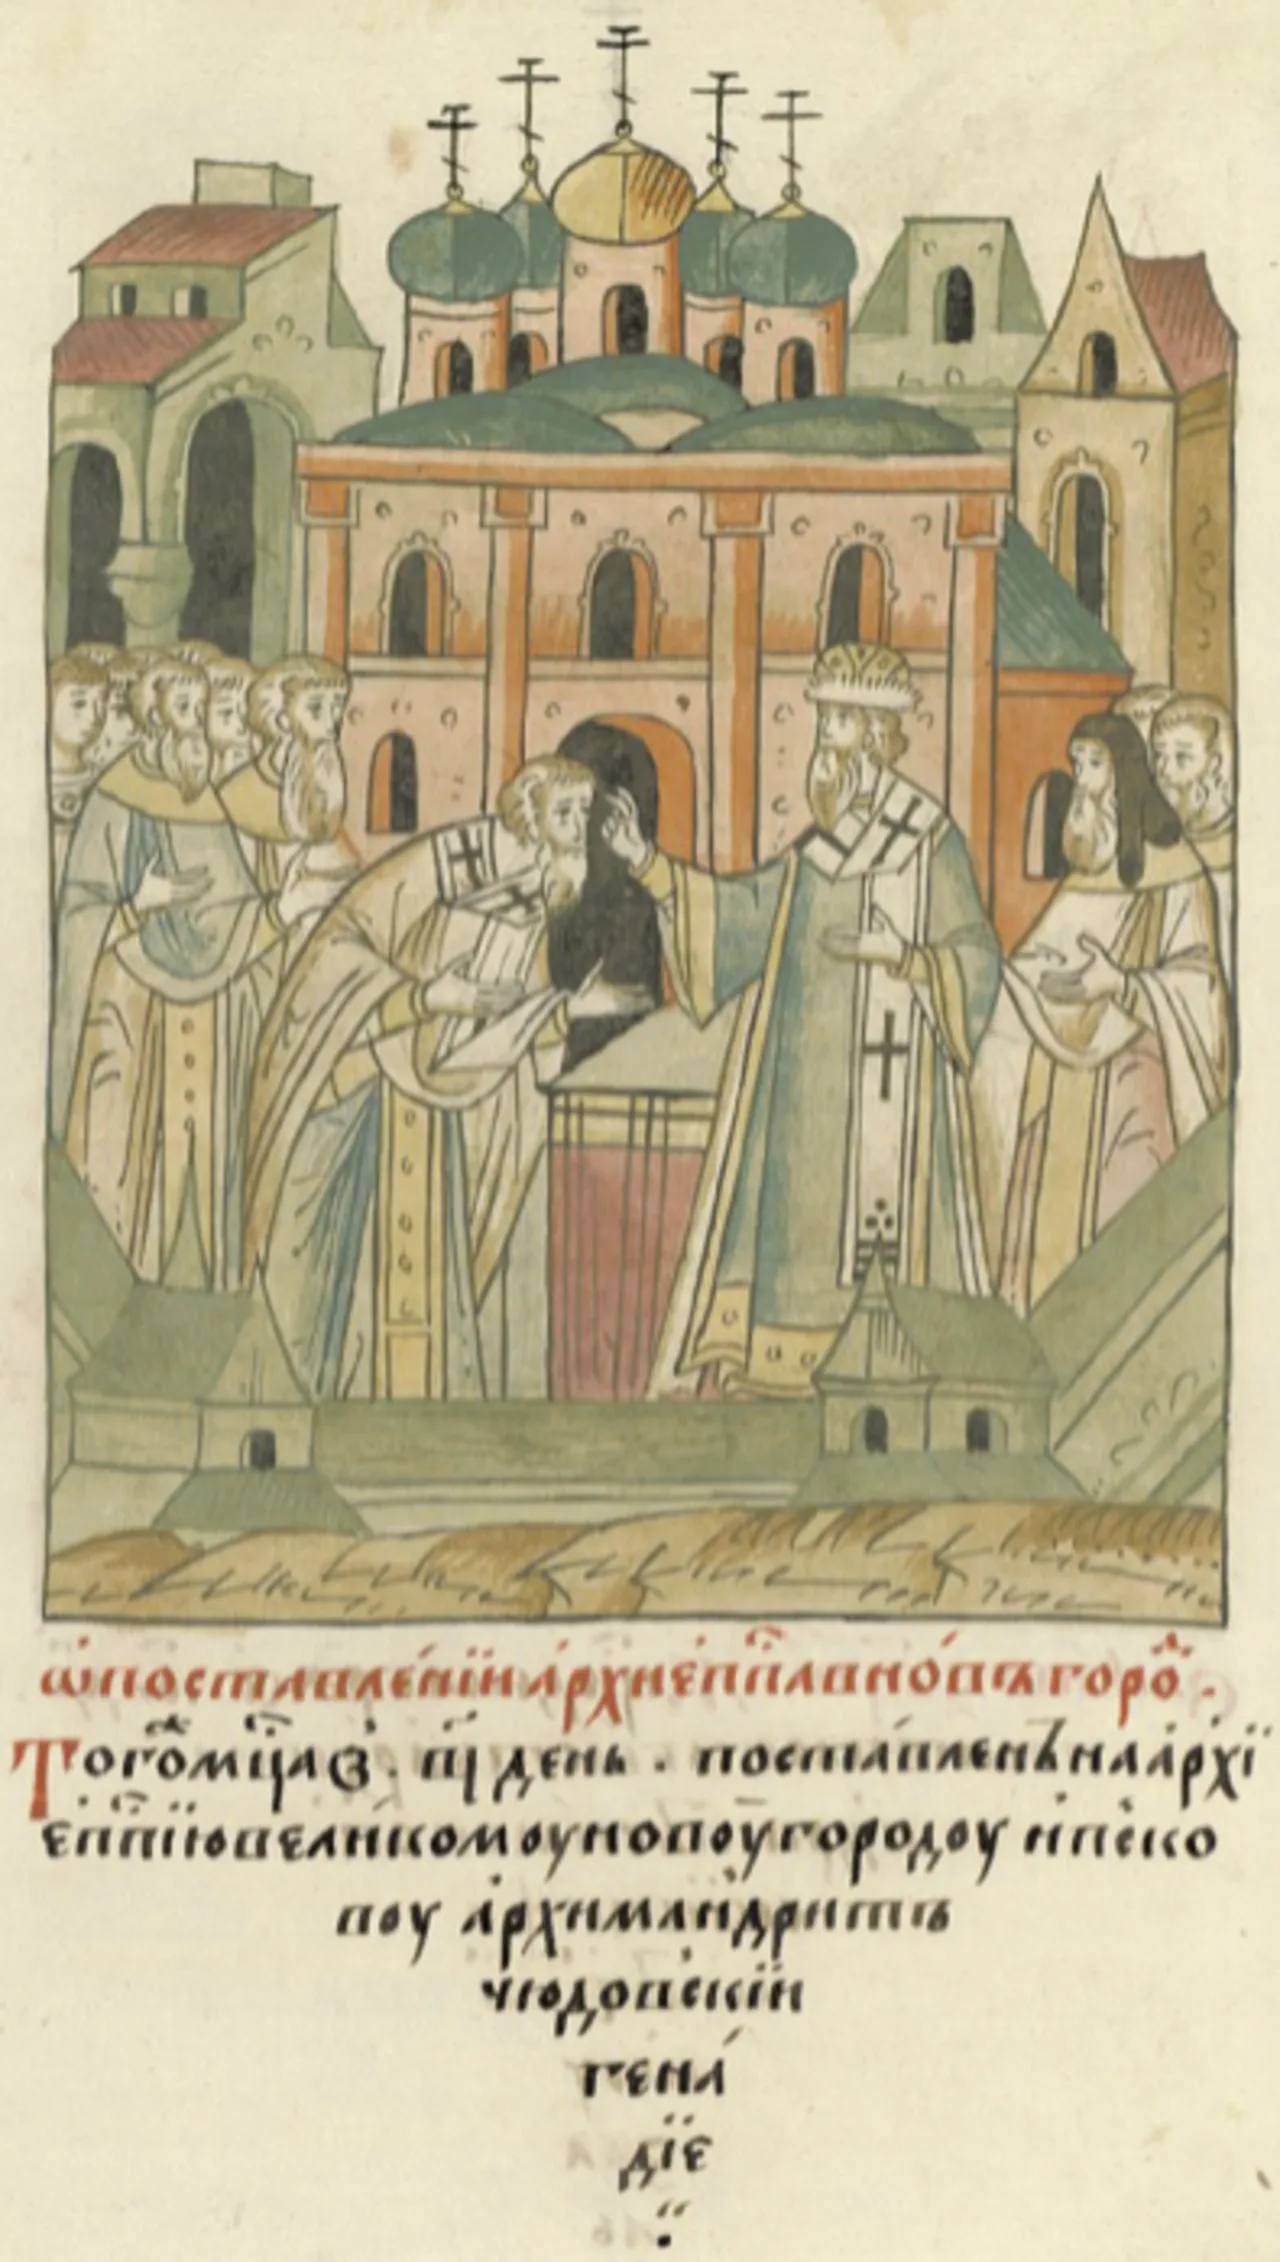 ѡпоставленїиархиепⷭ҇павновѣгоро́ⷣ.
Тогоⷤмцⷭ҇аѕ҃. в҃і день. поставленъ на архї
епⷭ҇пїювеликомоуновоугородоу ипьско
воу архимандритъ
чюдовьскїи
гена́
дїе